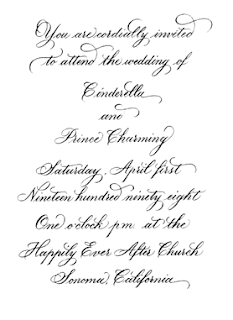 You are cordially invited
to attend the wedding of
Cinderella
and
Prince Charming
Saturday, April first
Nineteen hundred ninety eight
One o'clock pm at the
Happily Ever After Church
Sonoma, California